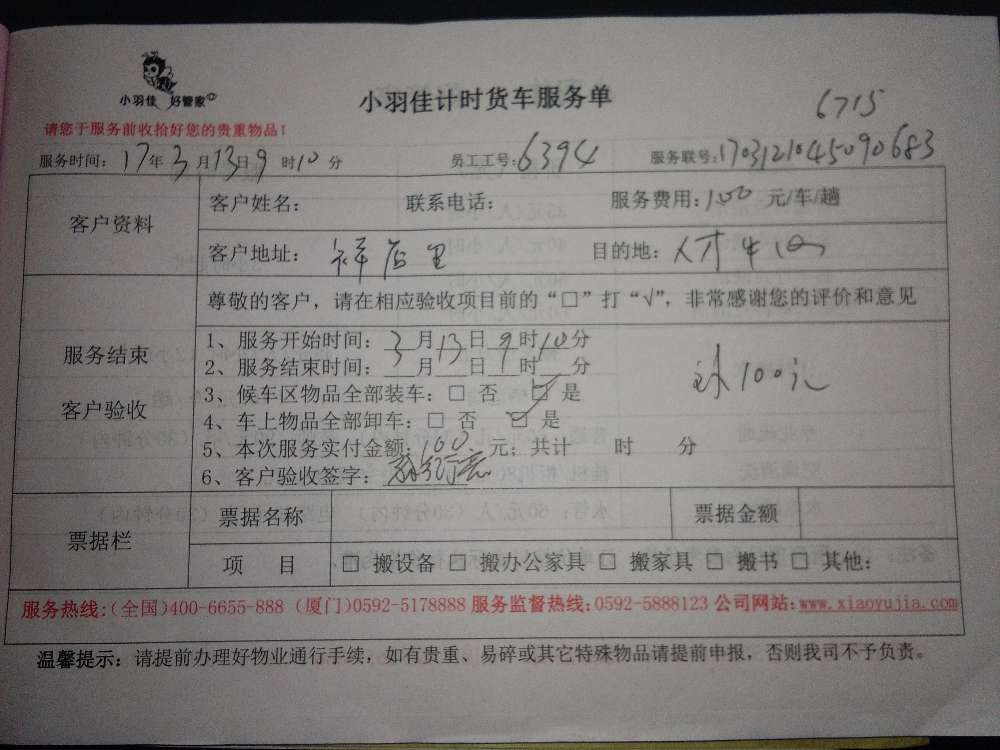 小羽佳 好管家
小羽佳计时货车服务单
6715
请您于服务前收拾好您的贵重物品！
服务时间：17年3月13日9时10分 员工工号：6394 服务联号：1703121045090683
客户资料
客户姓名： 联系电话： 服务费用：100 元/车/趟
客户地址：祥店里 目的地：人才中心
服务结束
客户验收
尊敬的客户，请在相应验收项目前的“□”打“√”，非常感谢您的评价和意见
1、服务开始时间：3月13日9时10分
2、服务结束时间：___月___日___时___分
3、候车区物品全部装车：□ 否 ☑ 是
4、车上物品全部卸车：□ 否 ☑ 是
5、本次服务实付金额：100 元；共计 时 分
100元
6、客户验收签字：
票据栏
票据名称 票据金额
项 目 □ 搬设备 □ 搬办公家具 □ 搬家具 □ 搬书 □ 其他：
服务热线：（全国）400-6655-888（厦门）0592-5178888 服务监督热线：0592-5888123 公司网站：www.xiaoyujia.com
温馨提示：请提前办理好物业通行手续，如有贵重、易碎或其它特殊物品请提前申报，否则我司不予负责。